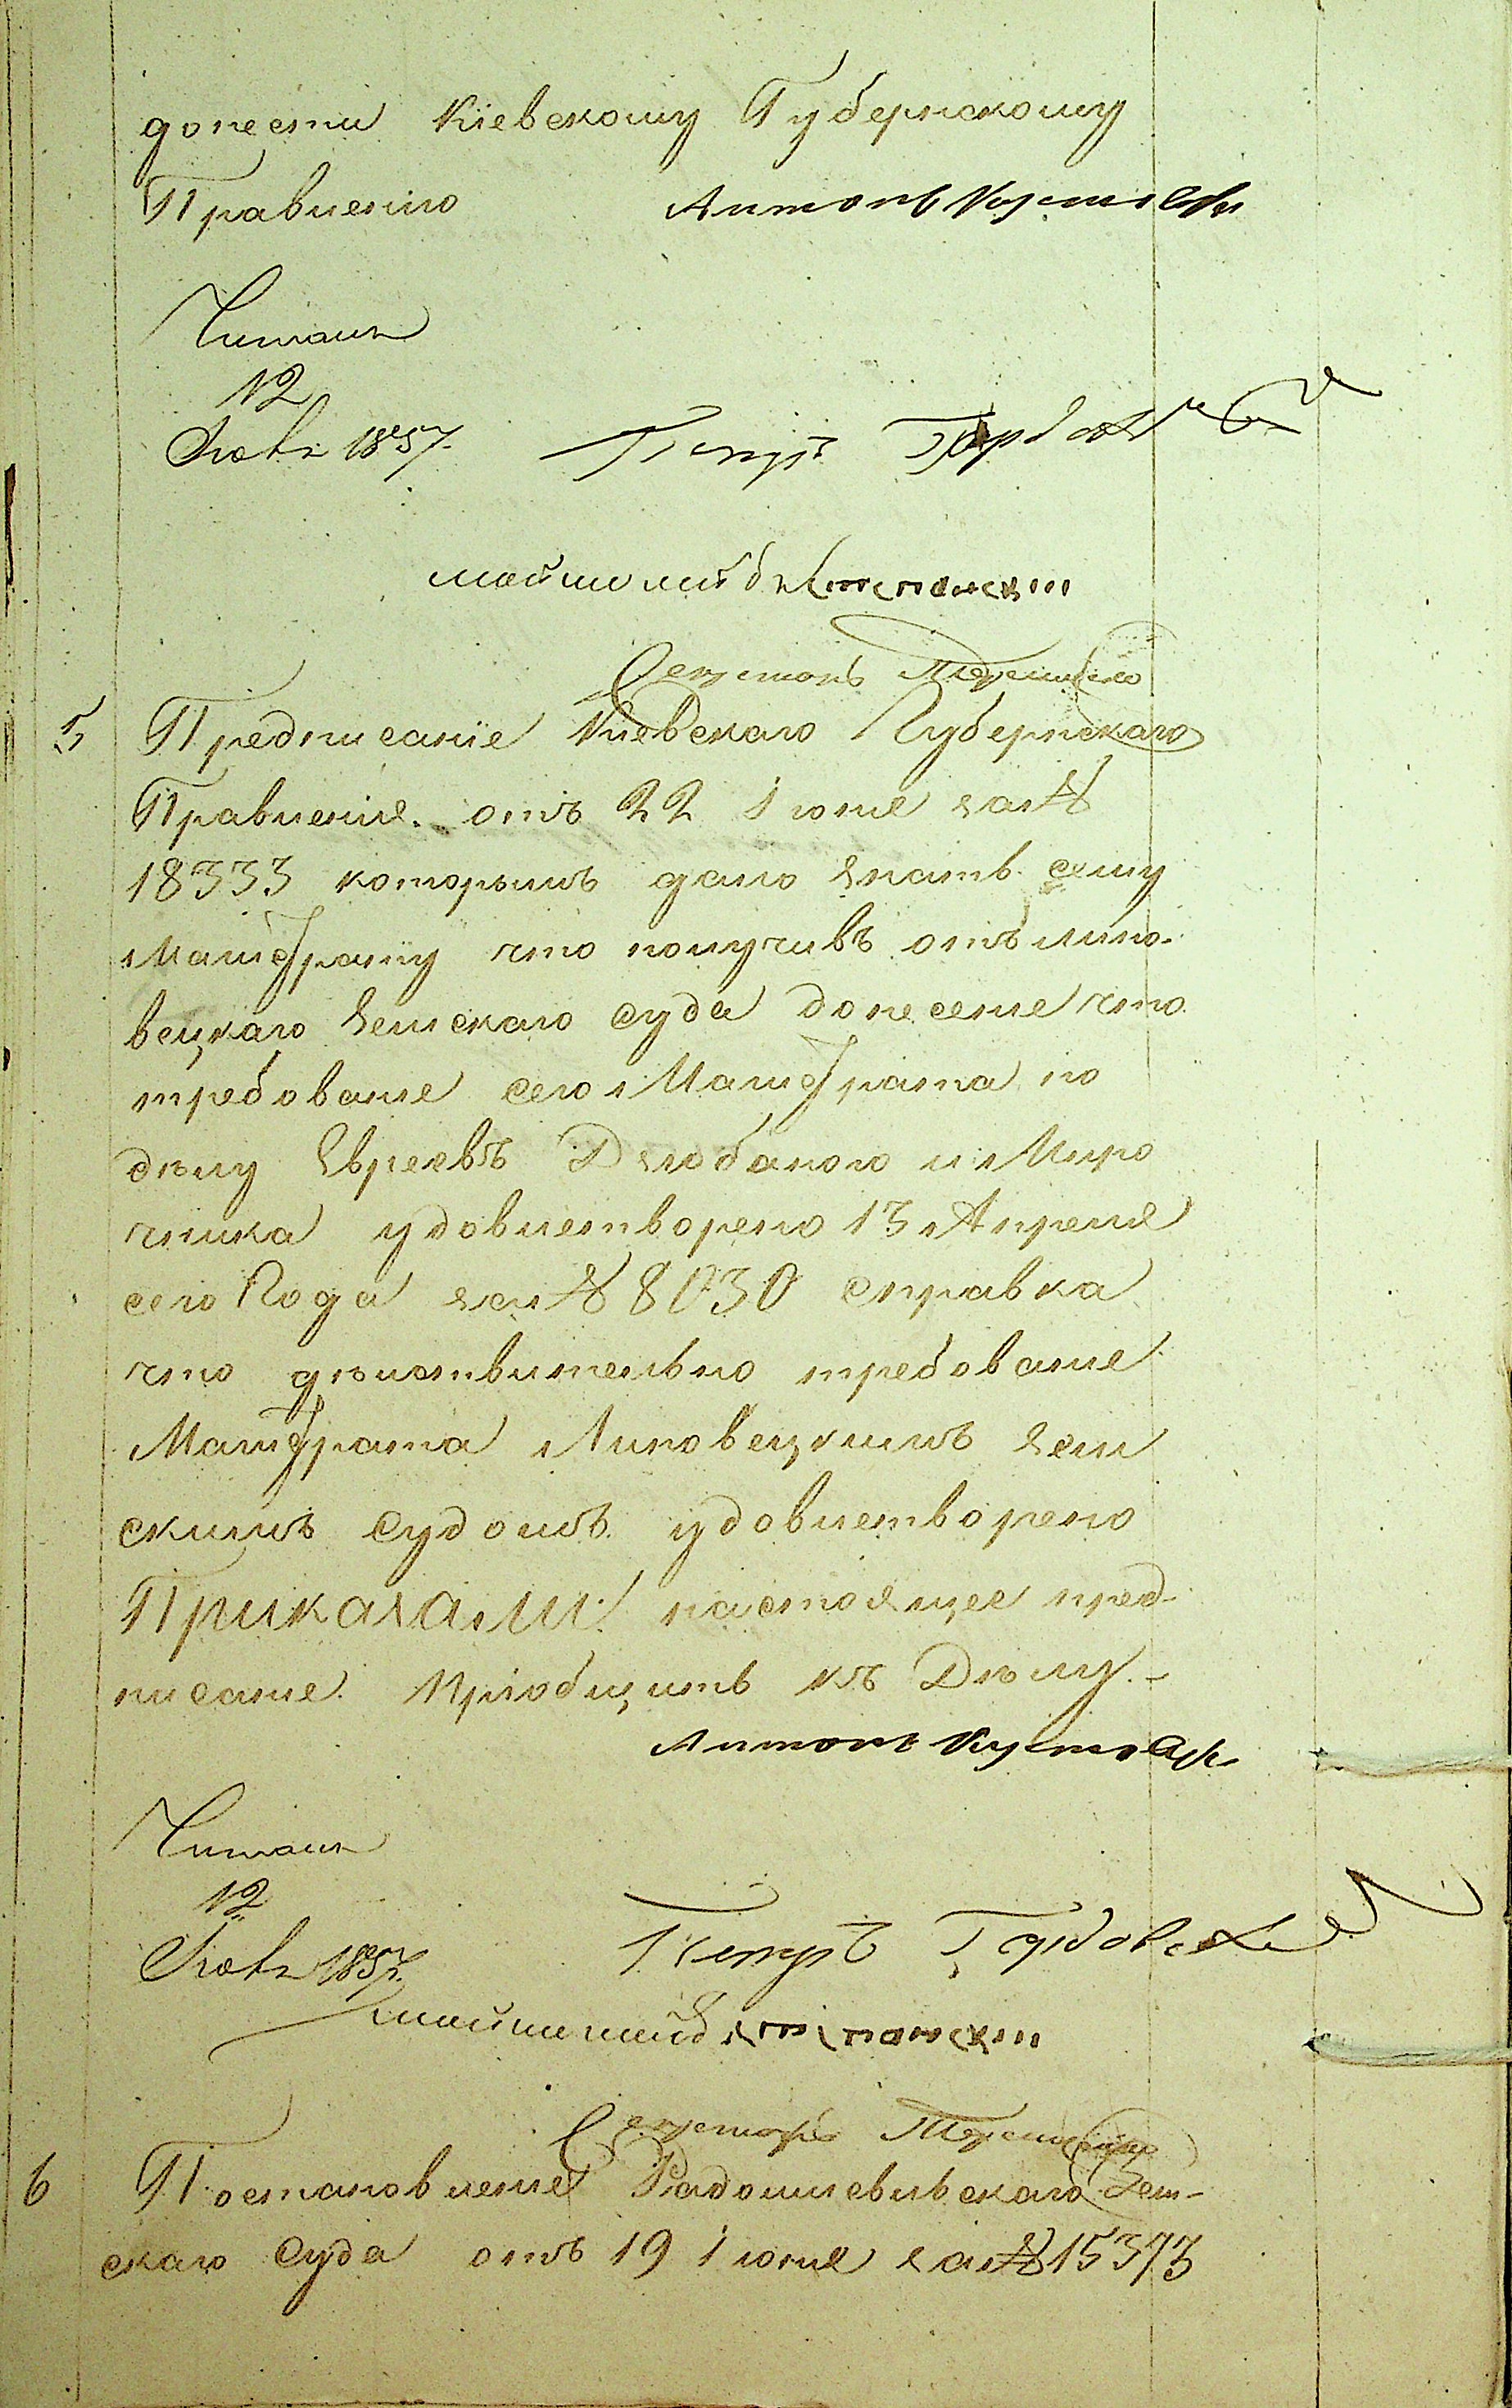 донести Кіевскому Губернскому
Правленію Антонъ
Читалъ
12
Іюля 1857. Петръ
5 Предписаніе Кіевскаго Губернскаго
Правленія. отъ 22 Іюня за №
18333 которымъ дано знать сему
Магистрату что получивъ отъ Липо-
вецкаго Земскаго Суда донесеніе что
требованіе сего Магистрата по
дѣлу Евреевъ и Миро
чника удовлетворено 13 Апреля
сего Года за № 8030 справка
что дѣйствительно требованіе
Магистрата Липовецкимъ Зем
скимъ Судомъ удовлетворено
Приказали: настоящее пред-
писаніе Пріобщить къ Дѣлу.-
Антонъ
Читалъ
12
Іюля 1857. Петръ
6 Постановленіе Радомысльскаго Зем-
скаго Суда отъ 19 Іюня за № 15373